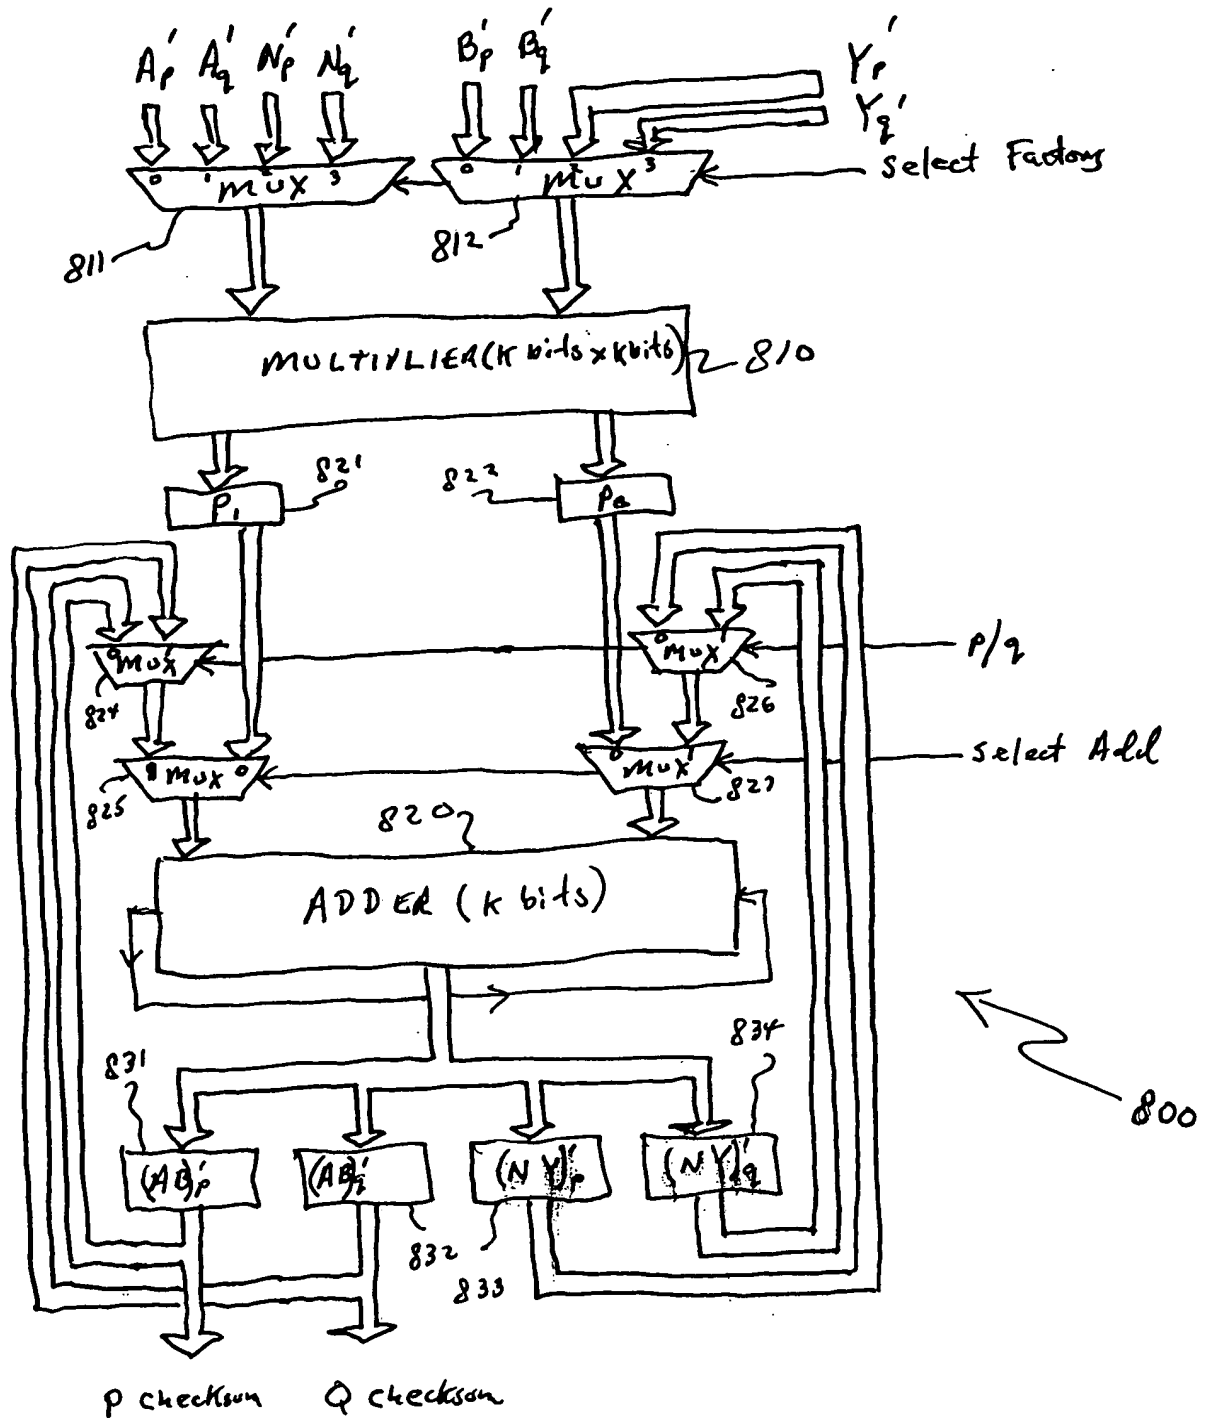 Ap' Aq' Np' Nq' Bp' Bq' Yp'
Yq'
select Factors
0 1 MUX 3
0 1 MUX 3
811
812
MULTIPLIER (K bits x K bits)
810
821
822
P1
P2
0 MUX 1
0 MUX 1
P/q
824
826
1 MUX 0
0 MUX 1
select Add
825
827
820
ADDER (K bits)
831
834
800
(AB)p'
(AB)q'
(N Y)p'
(N Y)q'
832
833
P checksum
Q checksum